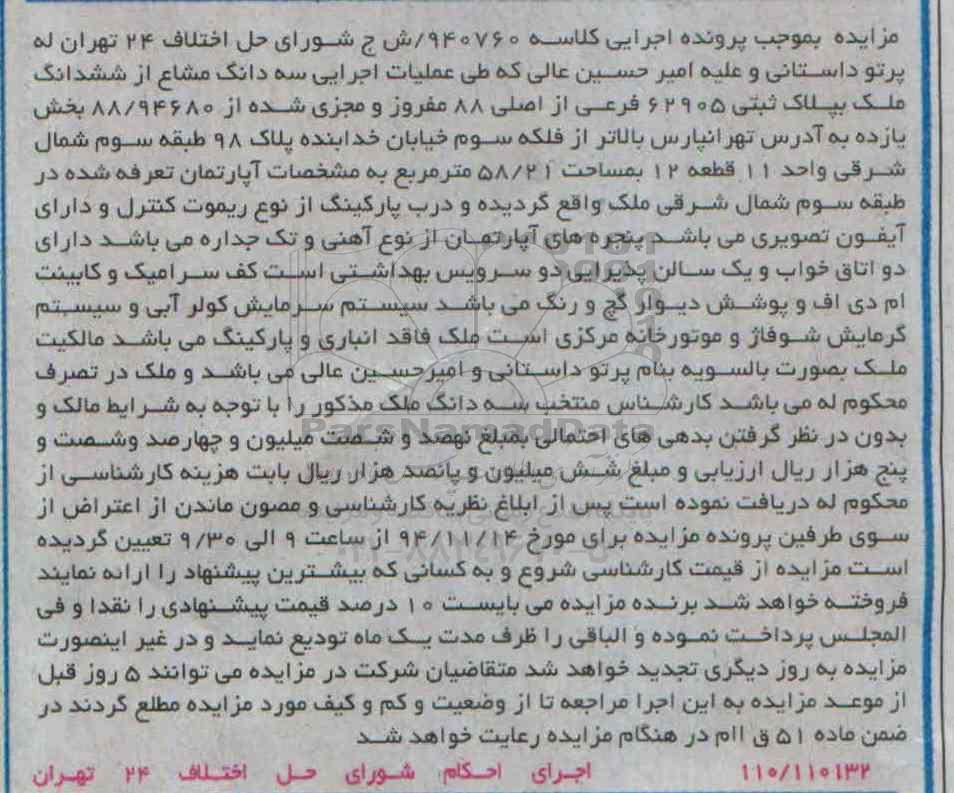 مزایده بموجب پرونده اجرایی کلاسه ۹۴۰۷۶۰/ش ج شورای حل اختلاف ۲۴ تهران له
پرتو داستانی و علیه امیر حسین عالی که طی عملیات اجرایی سه دانگ مشاع از ششدانگ
ملک بپلاک ثبتی ۶۲۹۰۵ فرعی از اصلی ۸۸ مفروز و مجزی شده از ۸۸/۹۴۶۸۰ بخش
یازده به آدرس تهرانپارس بالاتر از فلکه سوم خیابان خدابنده پلاک ۹۸ طبقه سوم شمال
شرقی واحد ۱۱ قطعه ۱۲ بمساحت ۵۸/۲۱ مترمربع به مشخصات آپارتمان تعرفه شده در
طبقه سوم شمال شرقی ملک واقع گردیده و درب پارکینگ از نوع ریموت کنترل و دارای
آیفون تصویری می باشد پنجره های آپارتمان از نوع آهنی و تک جداره می باشد دارای
دو اتاق خواب و یک سالن پذیرایی دو سرویس بهداشتی است کف سرامیک و کابینت
ام دی اف و پوشش دیوار گچ و رنگ می باشد سیستم سرمایش کولر آبی و سیستم
گرمایش شوفاژ و موتورخانه مرکزی است ملک فاقد انباری و پارکینگ می باشد مالکیت
ملک بصورت بالسویه بنام پرتو داستانی و امیرحسین عالی می باشد و ملک در تصرف
محکوم له می باشد کارشناس منتخب سه دانگ ملک مذکور را با توجه به شرایط مالک و
بدون در نظر گرفتن بدهی های احتمالی بمبلغ نهصد و شصت میلیون و چهارصد وشصت و
پنج هزار ریال ارزیابی و مبلغ شش میلیون و پانصد هزار ریال بابت هزینه کارشناسی از
محکوم له دریافت نموده است پس از ابلاغ نظریه کارشناسی و مصون ماندن از اعتراض از
سوی طرفین پرونده مزایده برای مورخ ۹۴/۱۱/۱۴ از ساعت ۹ الی ۹/۳۰ تعیین گردیده
است مزایده از قیمت کارشناسی شروع و به کسانی که بیشترین پیشنهاد را ارائه نمایند
فروخته خواهد شد برنده مزایده می بایست ۱۰ درصد قیمت پیشنهادی را نقدا و فی
المجلس پرداخت نموده و الباقی را ظرف مدت یک ماه تودیع نماید و در غیر اینصورت
مزایده به روز دیگری تجدید خواهد شد متقاضیان شرکت در مزایده می توانند ۵ روز قبل
از موعد مزایده به این اجرا مراجعه تا از وضعیت و کم و کیف مورد مزایده مطلع گردند در
ضمن ماده ۵۱ ق اام در هنگام مزایده رعایت خواهد شد
۱۱۰/۱۱۰۱۳۲ اجرای احکام شورای حل اختلاف ۲۴ تهران
ParsNamadData